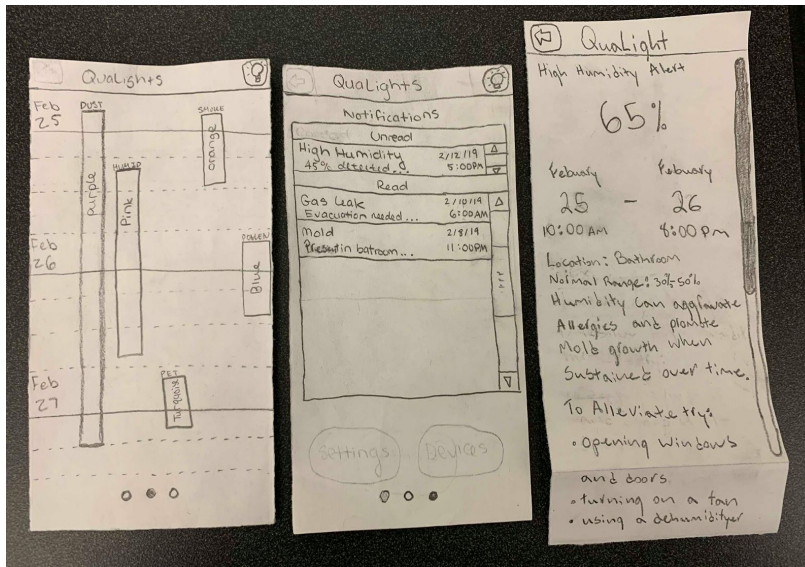 QuaLights
Feb
25
DUST
purple
HUMID
Pink
SMOKE
orange
Feb
26
POLLEN
Blue
Feb
27
PET
Turquoise
QuaLights
Notifications
Unread
High Humidity 2/12/19
45% detected... 5:00PM
Read
Gas Leak 2/10/19
Evacuation needed... 6:00AM
Mold 2/8/19
Present in batroom... 11:00PM
Settings Devices
QuaLight
High Humidity Alert
65%
Febuary Febuary
25 - 26
10:00 AM 8:00 Pm
Location: Bathroom
Normal Range: 30%-50%
Humidity Can aggravate
Allergies and promote
Mold growth when
Sustained over time.
To Alleviate try:
• opening windows
and doors
• turning on a fan
• using a dehumidifyer